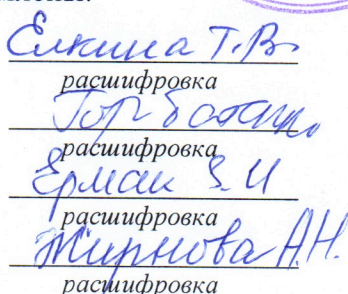 Елкина Т.В.
расшифровка
расшифровка
Ермак З.И
расшифровка
Жирнова А.Н.
расшифровка